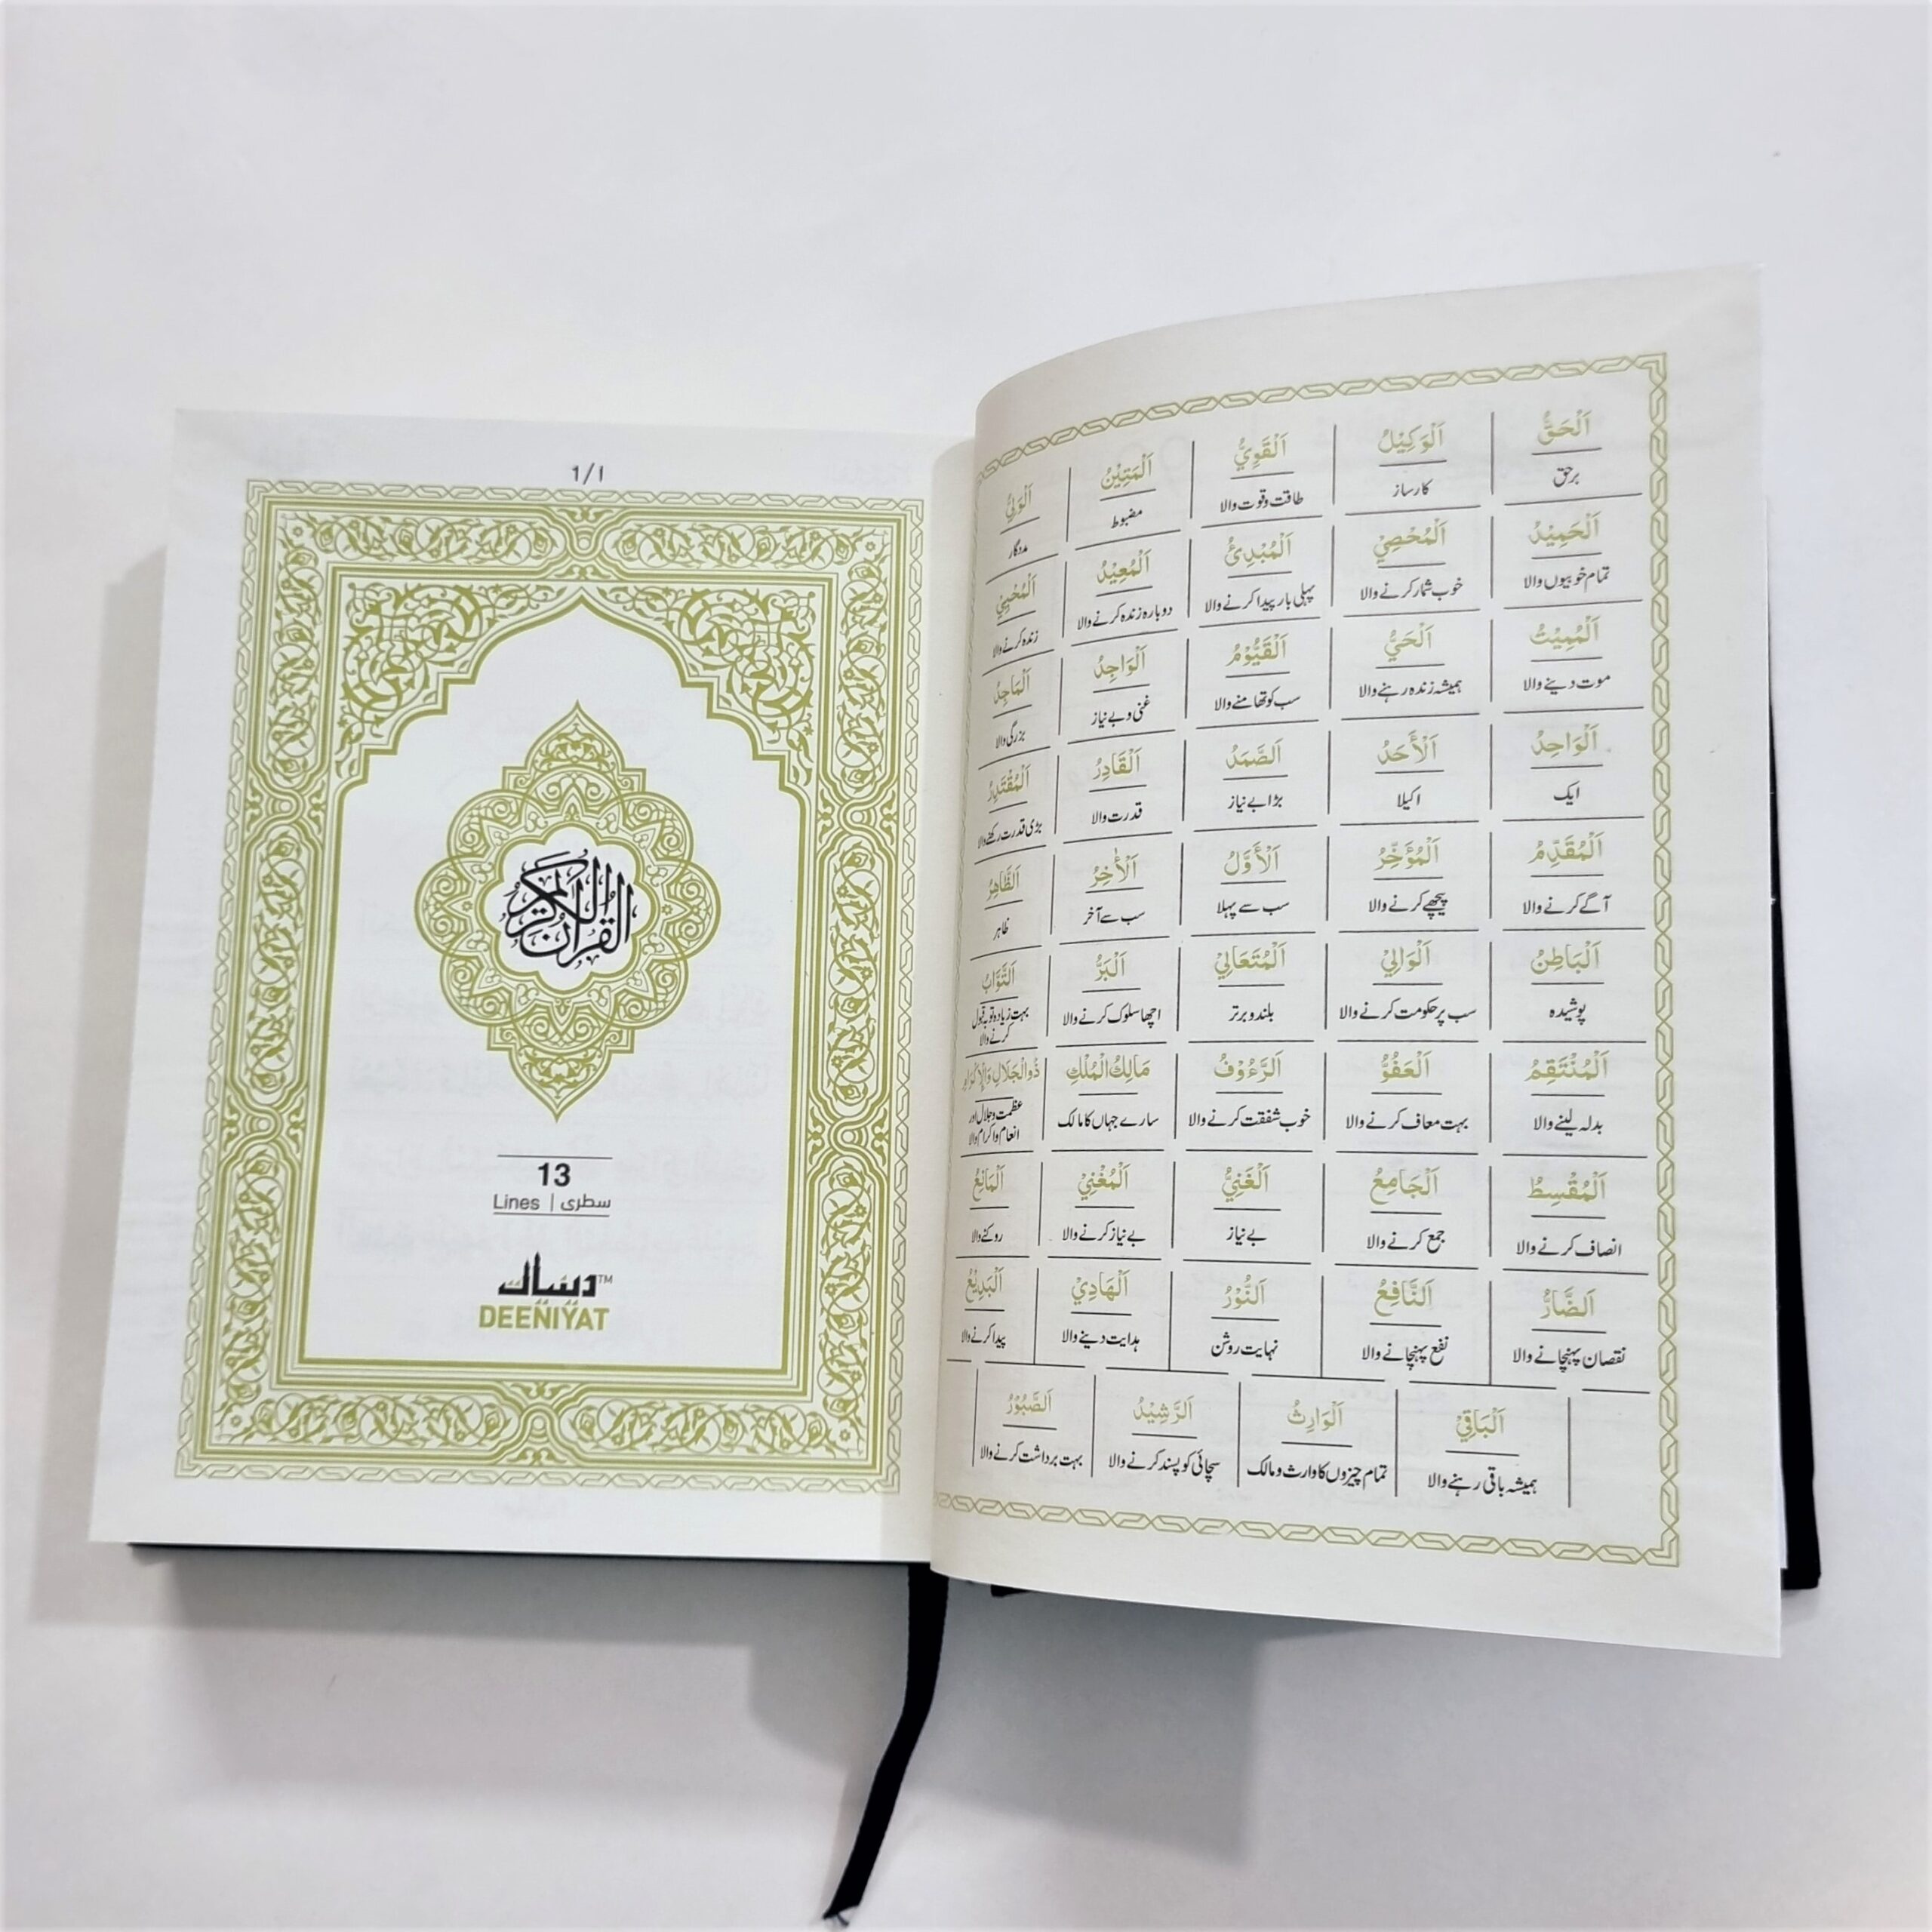 اَلْحَقُّ اَلْوَكِيْلُ اَلْقَوِيُّ اَلْمَتِيْنُ اَلْوَلِيُّ
برحق کارساز طاقت وقوت والا مضبوط مددگار
اَلْحَمِيْدُ اَلْمُحْصِيْ اَلْمُبْدِئُ اَلْمُعِيْدُ اَلْمُحْيِيْ
تمام خوبیوں والا خوب شمار کرنے والا پہلی بار پیدا کرنے والا دوبارہ زندہ کرنے والا زندہ کرنے والا
اَلْمُمِيْتُ اَلْحَيُّ اَلْقَيُّوْمُ اَلْوَاجِدُ اَلْمَاجِدُ
موت دینے والا ہمیشہ زندہ رہنے والا سب کو تھامنے والا غنی و بے نیاز بزرگی والا
اَلْوَاحِدُ اَلْأَحَدُ اَلصَّمَدُ اَلْقَادِرُ اَلْمُقْتَدِرُ
ایک اکیلا بڑا بے نیاز قدرت والا بڑی قدرت رکھنے والا
اَلْمُقَدِّمُ اَلْمُؤَخِّرُ اَلْأَوَّلُ اَلْأٰخِرُ اَلظَّاهِرُ
آگے کرنے والا پیچھے کرنے والا سب سے پہلا سب سے آخر ظاہر
اَلْبَاطِنُ اَلْوَالِيْ اَلْمُتَعَالِيْ اَلْبَرُّ اَلتَّوَّابُ
پوشیدہ سب پر حکومت کرنے والا بلند و برتر اچھا سلوک کرنے والا بہت زیادہ توبہ قبول
کرنے والا
اَلْمُنْتَقِمُ اَلْعَفُوُّ اَلرَّءُوْفُ مَالِكُ الْمُلْكِ ذُوالْجَلَالِ وَالْاِكْرَامِ
بدلہ لینے والا بہت معاف کرنے والا خوب شفقت کرنے والا سارے جہاں کا مالک عظمت و جلال اور
انعام و اکرام والا
اَلْمُقْسِطُ اَلْجَامِعُ اَلْغَنِيُّ اَلْمُغْنِيْ اَلْمَانِعُ
انصاف کرنے والا جمع کرنے والا بے نیاز بے نیاز کرنے والا روکنے والا
اَلضَّارُّ اَلنَّافِعُ اَلنُّوْرُ اَلْهَادِيْ اَلْبَدِيْعُ
نقصان پہنچانے والا نفع پہنچانے والا نہایت روشن ہدایت دینے والا پیدا کرنے والا
اَلْبَاقِيْ اَلْوَارِثُ اَلرَّشِيْدُ اَلصَّبُوْرُ
ہمیشہ باقی رہنے والا تمام چیزوں کا وارث و مالک سچائی کو پسند کرنے والا بہت برداشت کرنے والا
1/1
القرآن الكريم
13
Lines | سطری
دينيات™
DEENIYAT